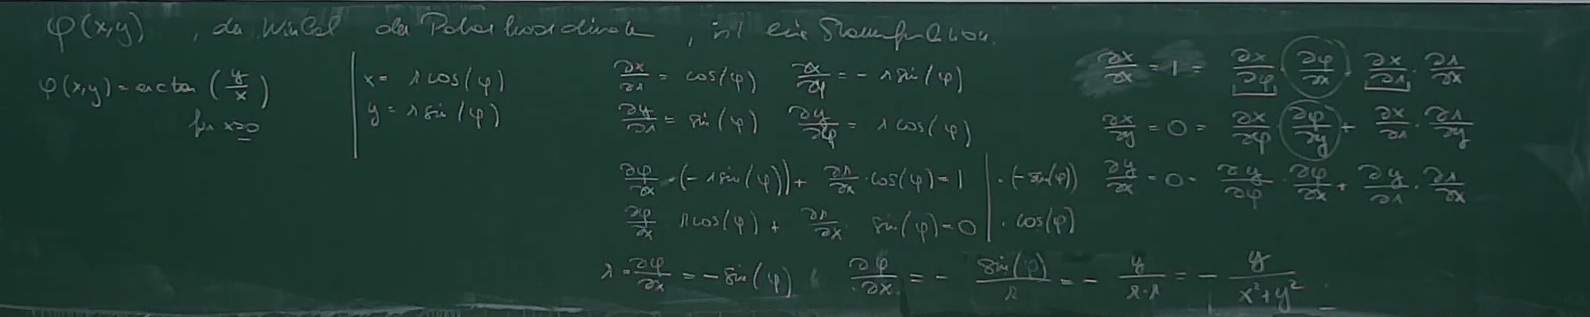 φ(x,y), der Winkel der Polarkoordinaten, ist eine Stammfunktion.
φ(x,y) = arctan (y/x)
für x>0
x = r cos(φ)
y = r sin(φ)
∂x/∂r = cos(φ) ∂x/∂φ = - r sin(φ)
∂y/∂r = sin(φ) ∂y/∂φ = r cos(φ)
∂φ/∂x · (- r sin(φ)) + ∂r/∂x · cos(φ) = 1 | · (-sin(φ))
∂φ/∂x r cos(φ) + ∂r/∂x sin(φ) = 0 | · cos(φ)
r · ∂φ/∂x = - sin(φ) ∂φ/∂x = - sin(φ)/r = - y/(r·r) = - y/(x²+y²)
∂x/∂x = 1 = ∂x/∂φ · ∂φ/∂x + ∂x/∂r · ∂r/∂x
∂x/∂y = 0 = ∂x/∂φ · ∂φ/∂y + ∂x/∂r · ∂r/∂y
∂y/∂x = 0 = ∂y/∂φ · ∂φ/∂x + ∂y/∂r · ∂r/∂x